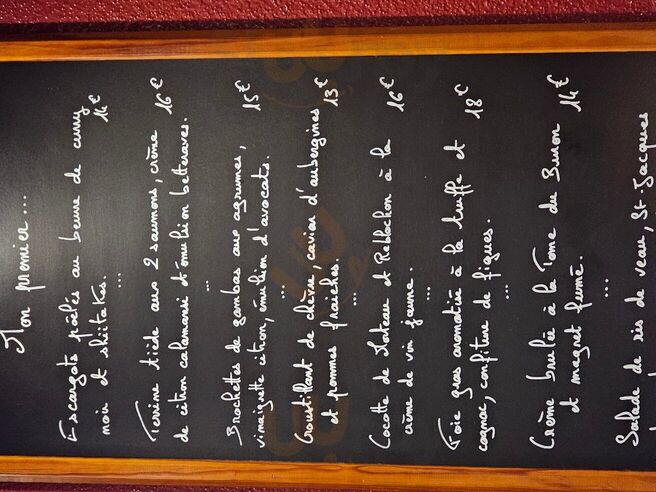 Mon premier....
Escargots poêlés au beurre de curry
noir et shiitakés. 14€
...
Terrine tiède aux 2 saumons, crème 16€
de citron calamansi et émulsion betteraves.
...
Brochettes de gambas aux agrumes, 15€
vinaigrette citron, émulsion d'avocats.
...
Croustillant de chèvre, caviar d'aubergines 13€
et pommes fraiches.
...
Cocotte de Morteau et Reblochon à la 16€
crème de vin jaune.
...
Foie gras aromatisé à la truffe et 18€
cognac, confiture de figues.
...
Crème brulée à la Tome du Buron 14€
et magret fumé.
...
Salade de ris de veau, St-Jacques